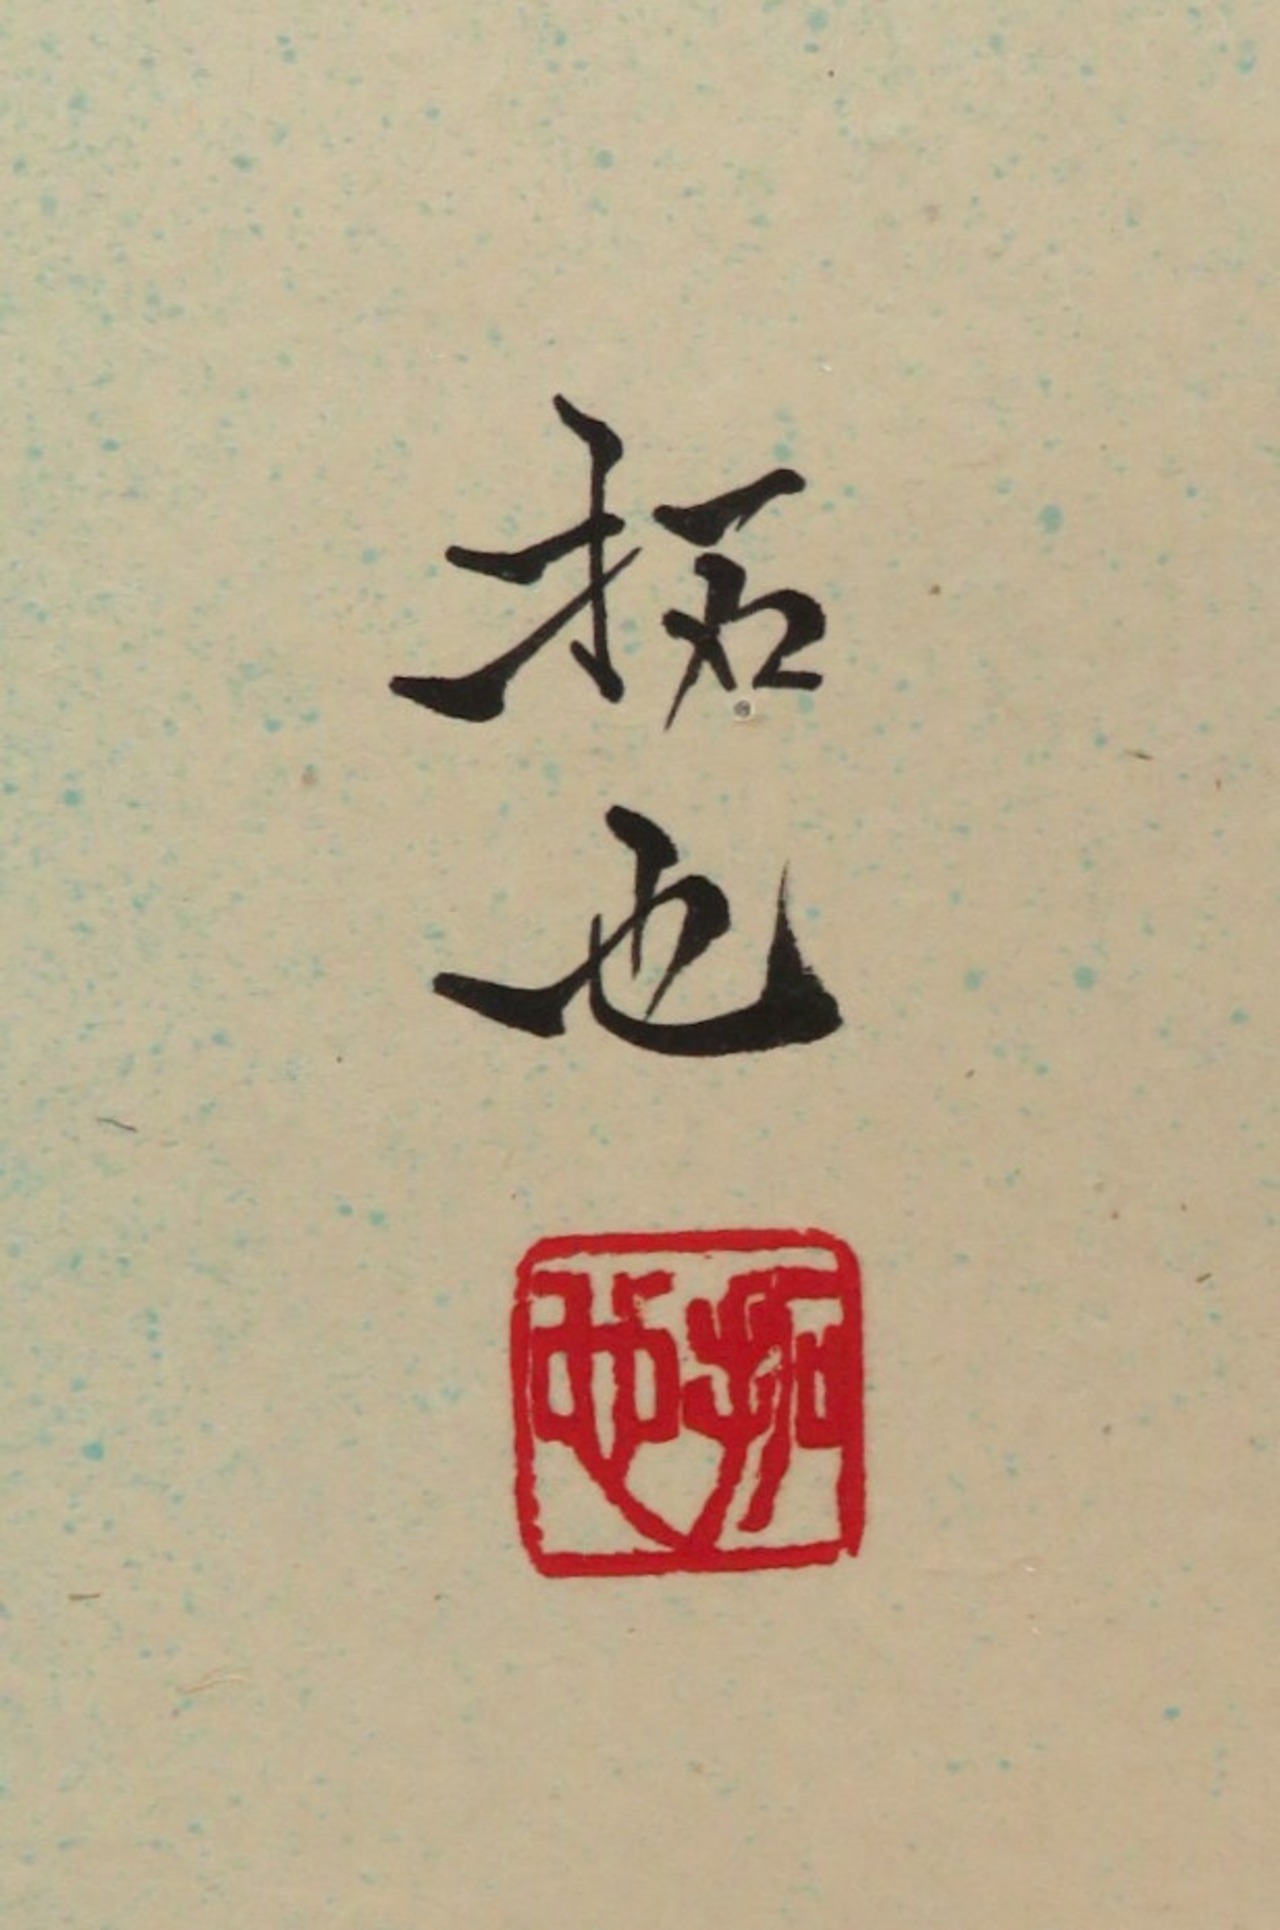 拓也
拓也